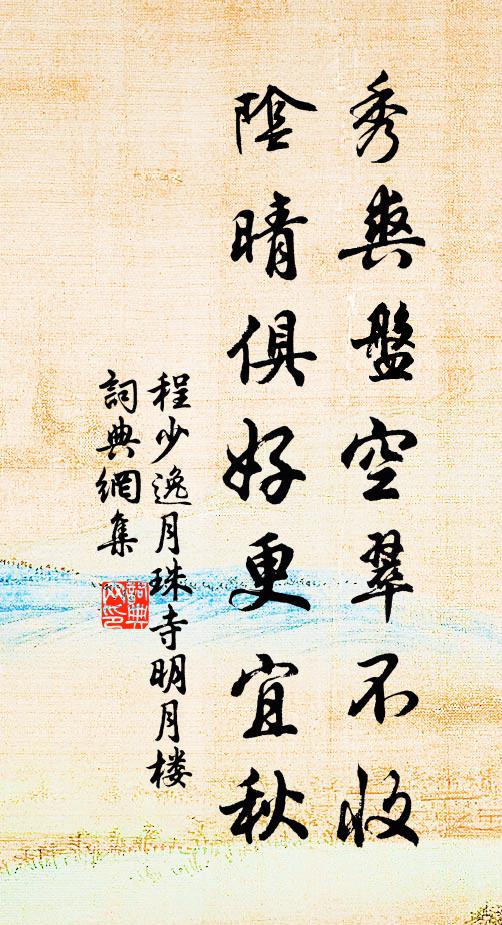 秀爽盤空翠不收
陰晴俱好更宜秋
程少逸月珠寺明月楼
詞典網集
詞典
文印